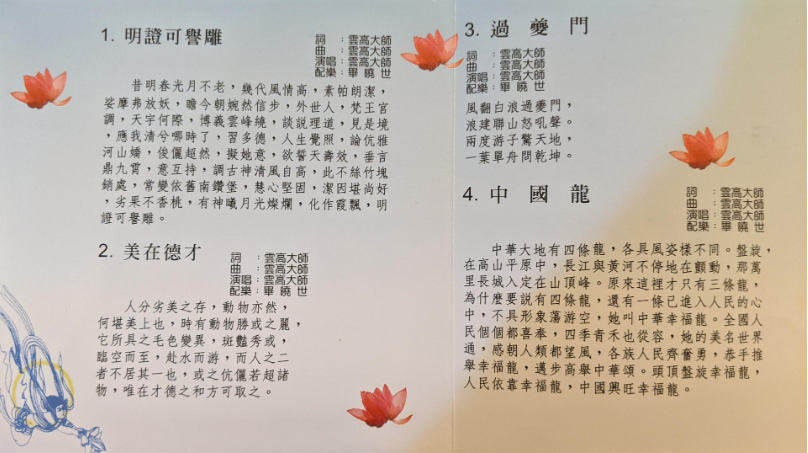 1. 明證可譽雕
詞：雲高大師
曲：雲高大師
演唱：雲高大師
配樂：畢曉世
昔明春光月不老，幾代風情高，素帕朗潔，
娑摩弗放妖，瞻今朝婉然信步，外世人，梵王宮
調，天宇何際，博義雲峰繞，談說理道，見是境
，應我清兮哪時了，習多德，人生覺照，論優雅
河山嬌，俊儷超然，擬她意，欲誓天壽效，垂言
鼎九霄，意互持，調古神清風自高，此不絲竹塊
銷處，常變依舊南鑽堡，慧心堅固，潔因堪尚好
，劣果不香桃，有神曦月光燦爛，化作霞飄，明
證可譽雕。
2. 美在德才
詞：雲高大師
曲：雲高大師
演唱：雲高大師
配樂：畢曉世
人分劣美之存，動物亦然，
何堪美上也，時有動物勝或之麗，
它所具之毛色變異，斑豔秀或，
臨空而至，赴水而游，而人之二
者不居其一也，或之伉儷若超諸
物，唯在才德之和方可取之。
3. 過夔門
詞：雲高大師
曲：雲高大師
演唱：雲高大師
配樂：畢曉世
風翻白浪過夔門，
浪建聯山怒吼聲。
兩度游子驚天地，
一葉單舟問乾坤。
4. 中國龍
詞：雲高大師
曲：雲高大師
演唱：雲高大師
配樂：畢曉世
中華大地有四條龍，各具風姿樣不同。盤旋，
在高山平原中，長江與黃河不停地在顫動，那萬
里長城入定在山頂峰。原來這裡才只有三條龍，
為什麼要說有四條龍，還有一條已進入人民的心
中，不具形象蕩游空，她叫中華幸福龍。全國人
民個個都喜奉，四季青禾也從容，她的美名世界
通，感朝人類都望風，各族人民齊奮勇，恭手推
舉幸福龍，邁步高舉中華頌。頭頂盤旋幸福龍，
人民依靠幸福龍，中國興旺幸福龍。